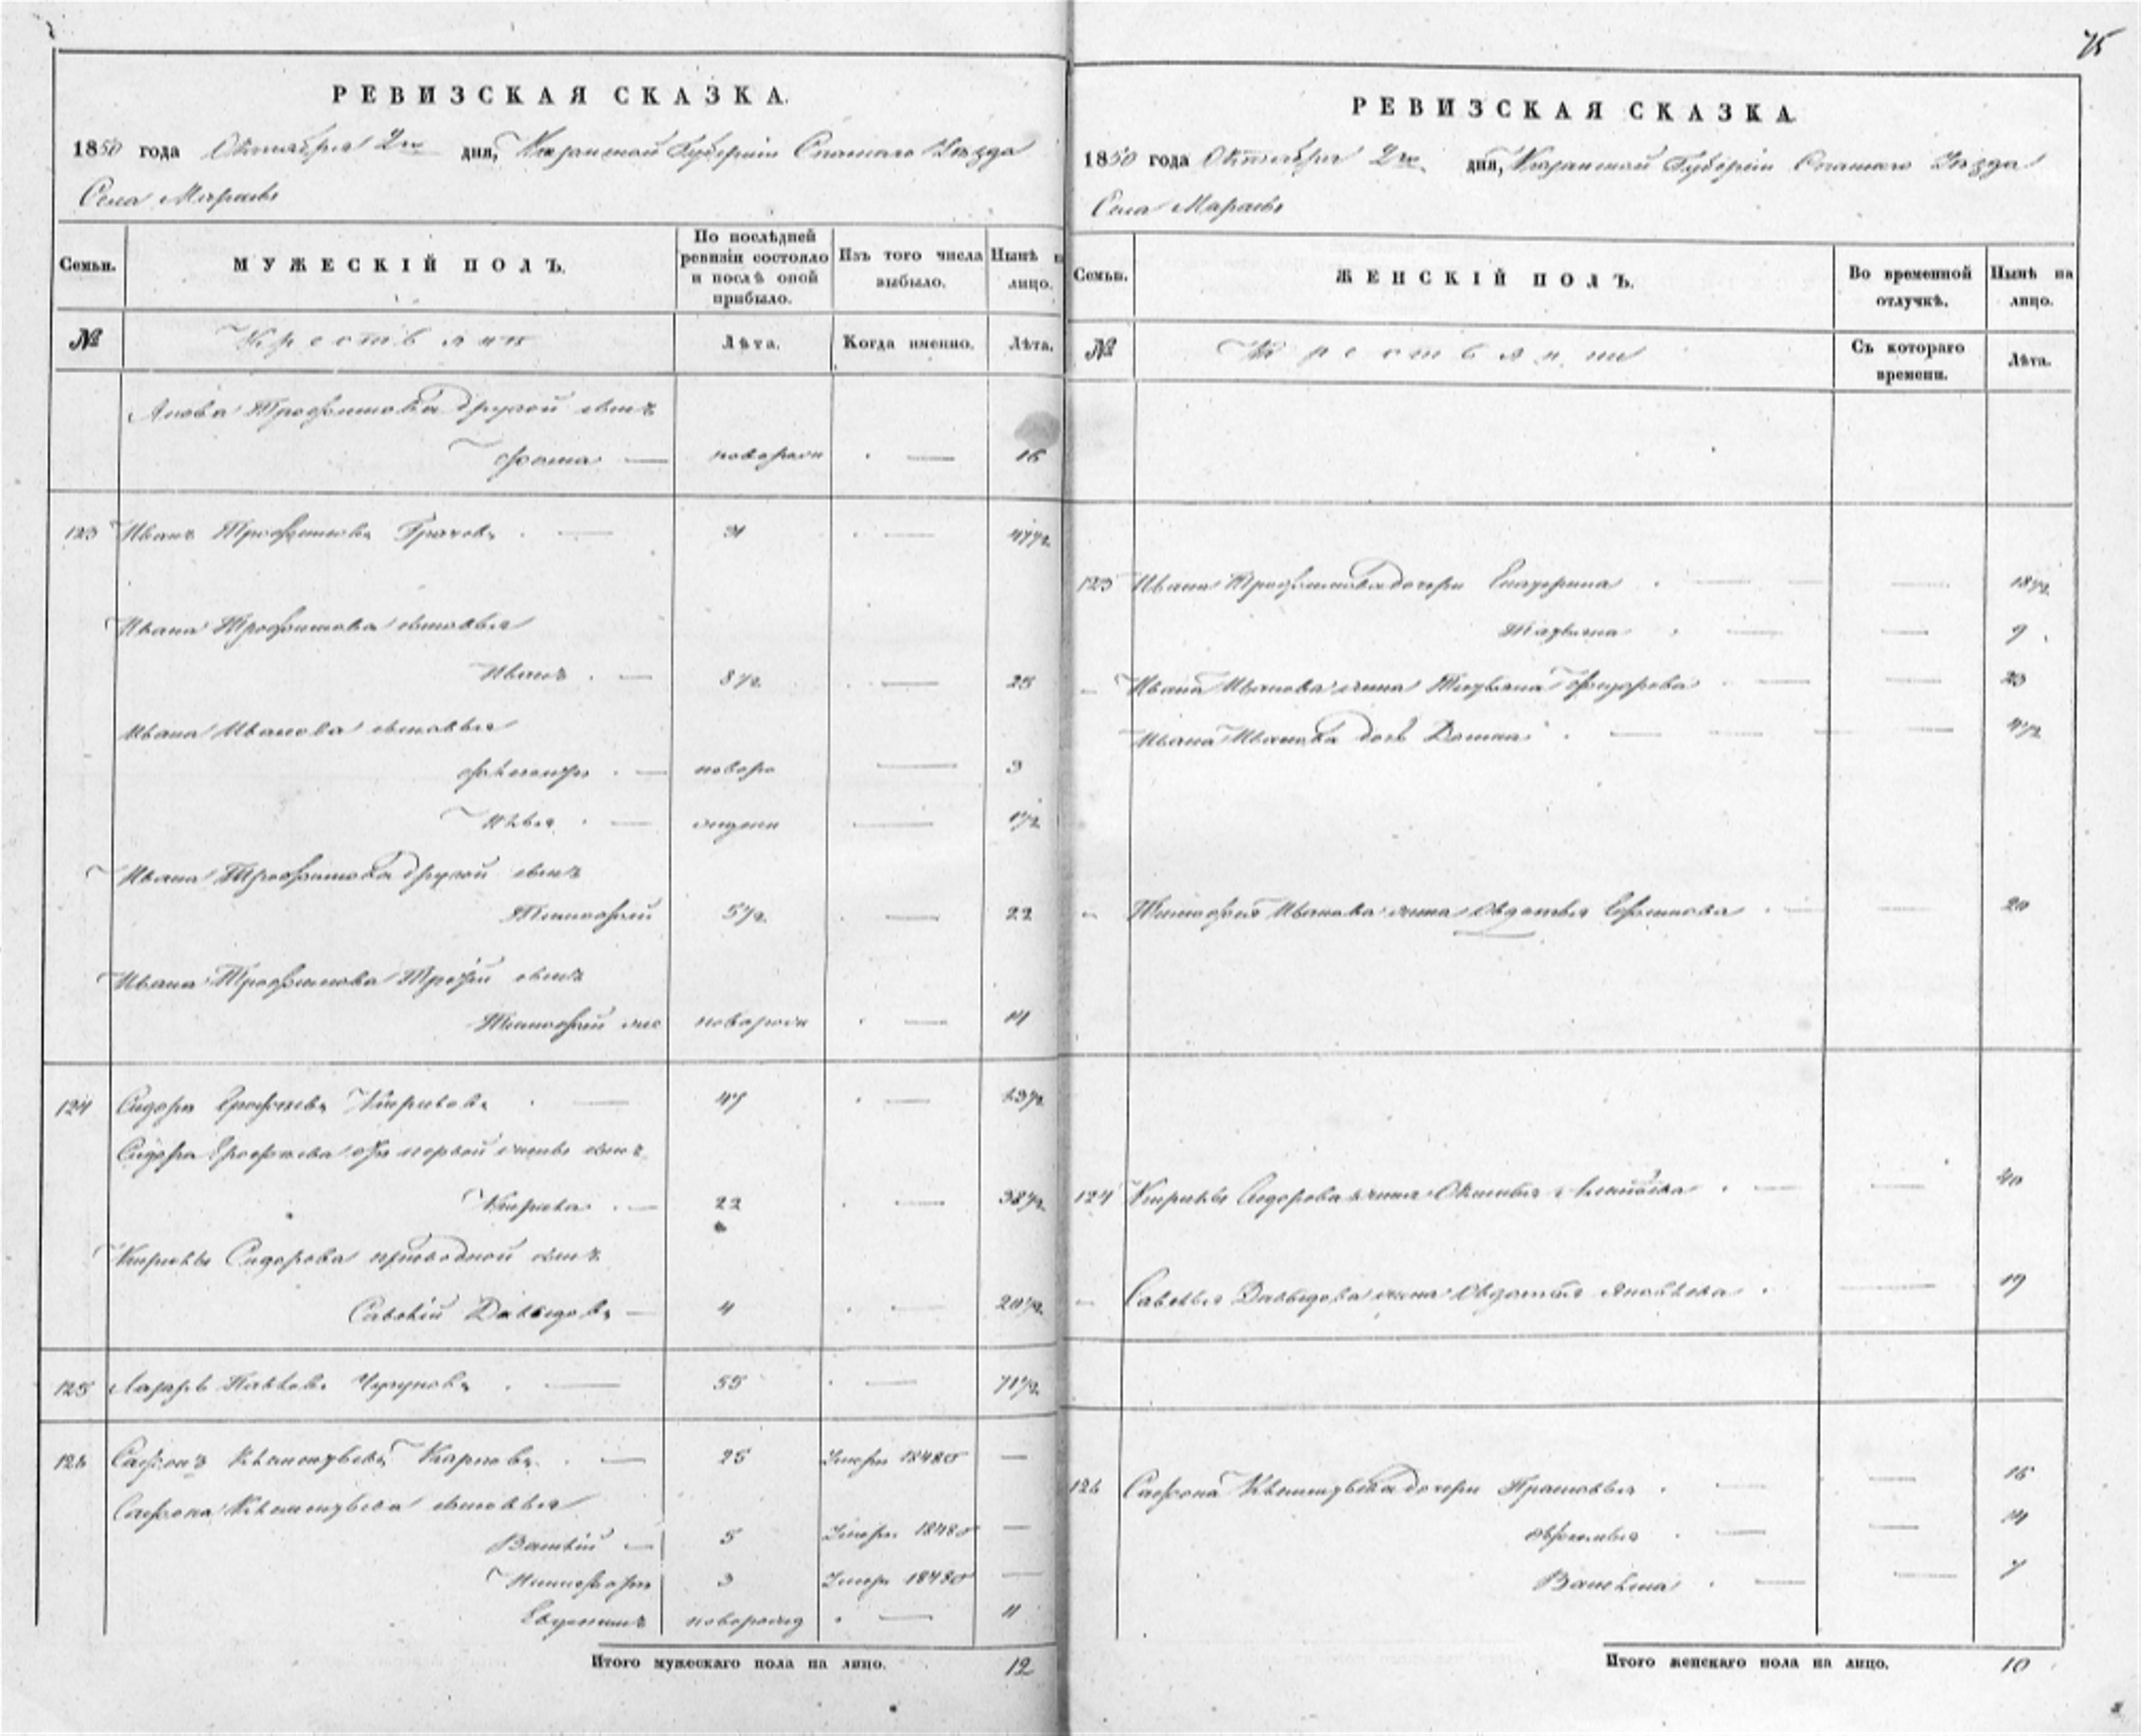 75
РЕВИЗСКАЯ СКАЗКА.
1850 года Октября 2го дня, Казанской Губернiи Спаскаго Уѣзда
Села
Семьи. МУЖЕСКІЙ ПОЛЪ. По послѣдней ревизіи состояло и послѣ оной прибыло. Изъ того числа выбыло. Нынѣ на лицо.
№ Крестьяне Лѣта. Когда именно. Лѣта.
Трофимова другой сынъ
Фома — новорож — 16
123 Иванъ Трофимовъ Грачовъ — 31 — 47½
Ивана Трофимова сыновья
Иванъ — 8½ — 25
Ивана Иванова сыновья
— новоро — 3
— — 1½
Ивана Трофимова другой сынъ
Тимофей 5½ — 22
Ивана Трофимова Третiй сынъ
Тимофей новорож — 14
124 Сидоръ Ерофеевъ — 47 — 63½
Сидора Ерофеева отъ первой жены сынъ
Кирила — 22 — 38½
Кирилы Сидорова приводной сынъ
Савелiй Давыдовъ — 4 — 20½
125 Лазарь Павловъ Чугуновъ — 55 — 71½
126 Сафронъ Климентьевъ Карповъ — 25 Умеръ 1848 —
Сафрона Климентьева сыновья
Василiй — 5 Умеръ 1848 —
Никифоръ 3 Умеръ 1848 —
новорожд — 11
Итого мужескаго пола на лицо. 12
РЕВИЗСКАЯ СКАЗКА
1850 года Октября 2го дня, Казанской Губернiи Спаскаго Уѣзда
Села
Семьи. ЖЕНСКІЙ ПОЛЪ. Во временной отлучкѣ. Нынѣ на лицо.
№ Крестьянки Съ котораго времени. Лѣта.
123 Ивана Трофимова дочери Екатерина — 18½
Татьяна — 9
Ивана Иванова жена Татьяна Федорова — 23
Ивана Иванова дочь Домна — 4½
Тимофея Иванова жена Авдотья Ефимова — 20
124 Кирилы Сидорова жена — 40
Савелья Давыдова жена Авдотья Яковлева — 19
126 Сафрона Климентьева дочери Прасковья — 16
— 14
Василиса — 7
Итого женскаго пола на лицо. 10